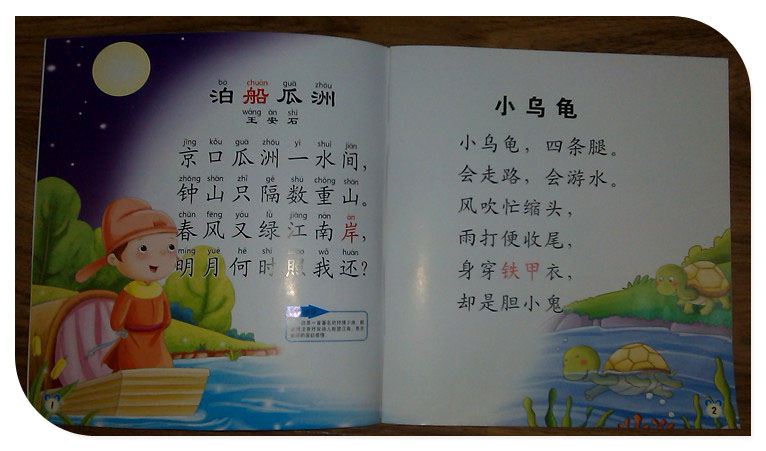 bó chuán guā zhōu
泊船瓜洲
wáng ān shí
王安石
jīng kǒu guā zhōu yì shuǐ jiān
京口瓜洲一水间，
zhōng shān zhǐ gé shù chóng shān
钟山只隔数重山。
chūn fēng yòu lǜ jiāng nán àn
春风又绿江南岸，
míng yuè hé shí wǒ huán
明月何时照我还？
1
小乌龟
小乌龟，四条腿。
会走路，会游水。
风吹忙缩头，
雨打便收尾，
身穿铁甲衣，
却是胆小鬼
2